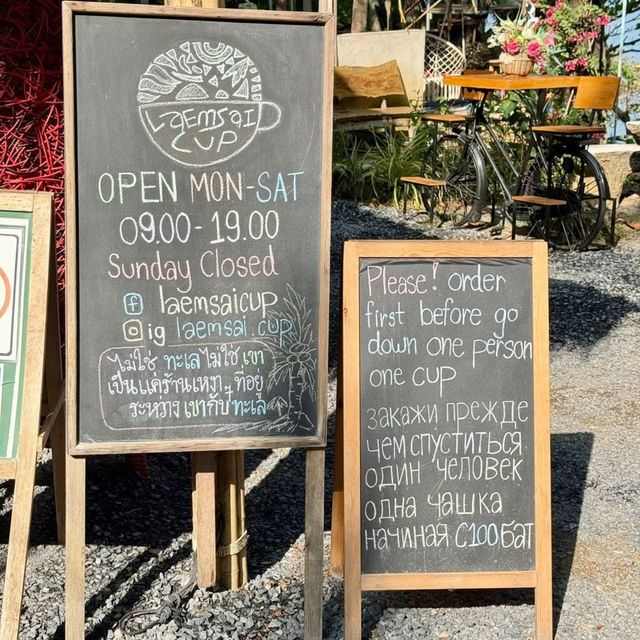 LaEmSaI
CUP
OPEN MON-SAT
09.00 - 19.00
Sunday Closed
laemsaicup
ig laemsai.cup
ไม่ใช่ ทะเลไม่ใช่เขา
เป็นแค่ร้านเหงาๆ ที่อยู่
ระหว่างเขากับทะเล
Please! order
first before go
down one person
one cup
закажи прежде
чем спуститься
один человек
одна чашка
начиная с 100 бат